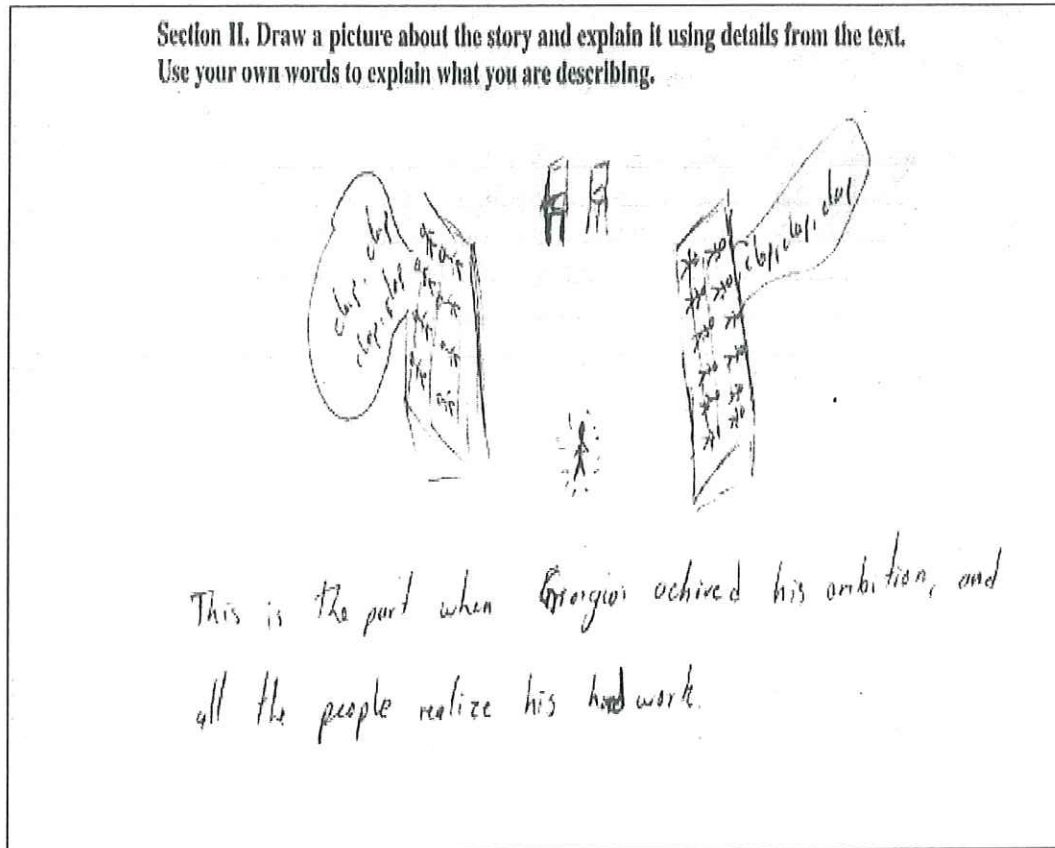 Section II. Draw a picture about the story and explain it using details from the text.
Use your own words to explain what you are describing.
clap, clap
clap, clap
clap, clap, clap
This is the part when Giorgios achived his ambition, and
all the people realize his hard work.